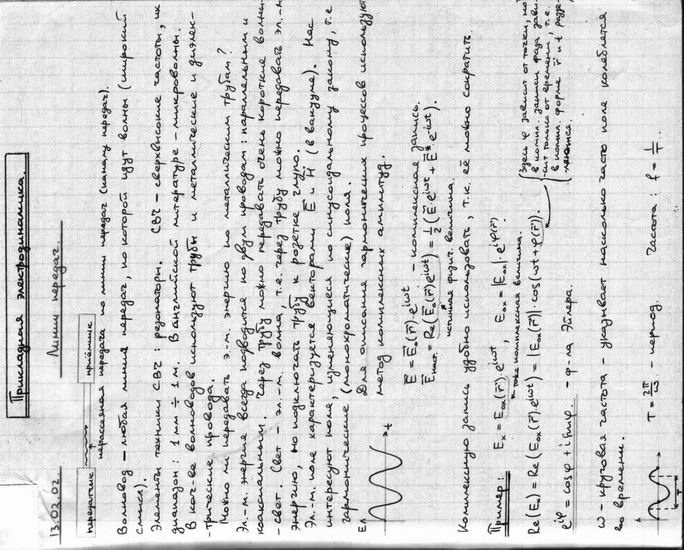 Прикладная электродинамика.
13.02.02 Линии передач.
передатчик приёмник
нерассеянная передача по линии передач (каналу передач).
Волновод – любая линия передач, по которой идут волны (широкий
смысл).
Элементы техники СВЧ: резонаторы. СВЧ – сверхвысокие частоты, их
диапазон: 1 мм ÷ 1 м. В английской литературе – микроволны.
В кач-ве волноводов используют трубы и металлические и диэлек-
-трические провода.
Можно ли передавать э.м. энергию по металлическим трубам?
Эл.-м. энергия всегда подводится по двум проводам: параллельным и
коаксиальным. Через трубу можно передавать очень короткие волны-
- свет. (свет – эл.-м. волна, т.е. через трубу можно передавать эл.-м.
энергию, но подключать трубу к розетке глупо.
Эл.-м. поле характеризуется векторами E⃗ и H⃗ (в вакууме). Нас
интересуют поля, изменяющиеся по синусоидальному закону, т.е
гармонические (монохроматические) поля.
Для описания гармонических процессов используют
метод комплексных амплитуд.
E t
E⃗ = E⃗₀(r⃗)·e^{iωt} – комплексная запись.
E⃗ = Re(E⃗₀(r⃗)e^{iωt}) = ½(E⃗·e^{iωt} + E⃗*·e^{-iωt}).
истинная физич. величина.
Комплексную запись удобно использовать, т.к. её можно сократить.
Пример: Eₓ = E₀ₓ(r⃗)·e^{iωt}, E₀ₓ = |E₀ₓ|·e^{iφ(r⃗)}
тоже комплексная величина.
Re(Eₓ) = Re(E₀ₓ(r⃗)·e^{iωt}) = |E₀ₓ(r⃗)|·cos(ωt + φ(r⃗)).
Здесь φ зависит от точки, но
в компл. записи фаза зави-
сит только от времени, т.е.
в компл. форме r⃗ и t разде-
ляются.
e^{iφ} = cosφ + i sinφ. – ф-ла Эйлера.
ω – круговая частота – указывает насколько часто поле колеблется
во времени.
T T = 2π/ω – период. Частота: f = 1/T